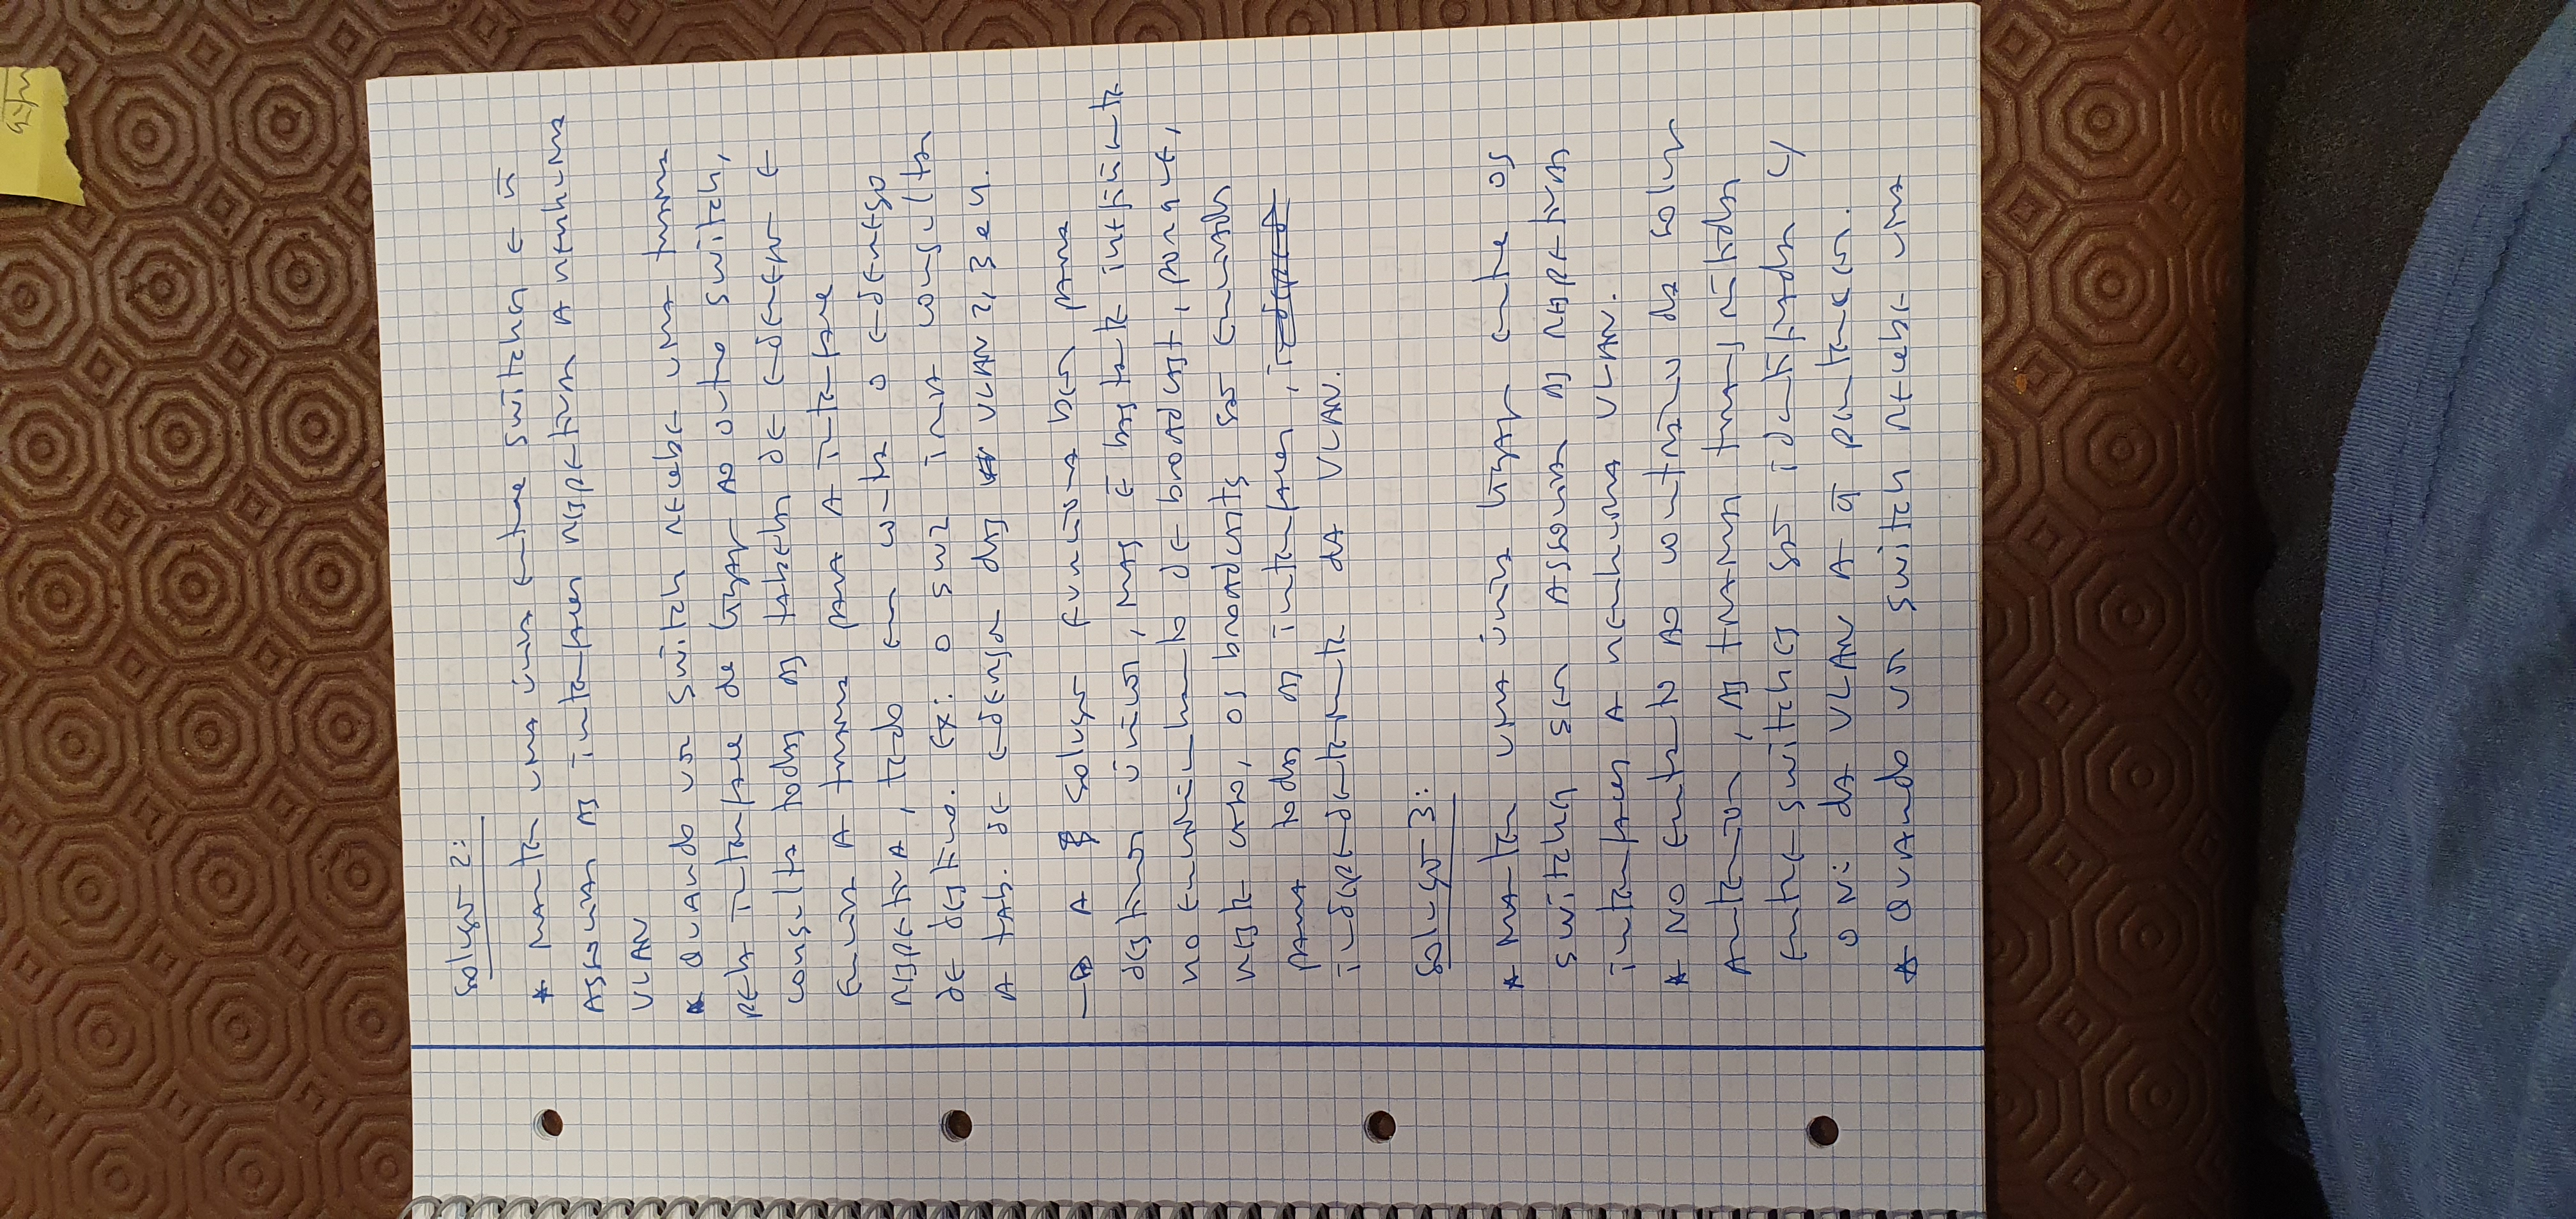 Solução 2:
* Manter uma única entre switches e ñ
associar as interfaces respetivas a nenhuma
VLAN
* Quando um switch recebe uma trama
pela interface de ligação ao outro switch,
consulta todas as tabelas de endereços e
envia a trama para a interface
respetiva, tendo em conta o endereço
de destino. Ex: o SW2 irá consultar
a tab. de endereços das VLAN 2, 3 e 4.
→ A solução funciona bem para
destinos únicos, mas é bastante ineficiente
no encaminhamento de broadcast, porque,
neste caso, os broadcasts são enviados
para todas as interfaces,
independentemente da VLAN.
Solução 3:
* Manter uma única ligação entre os
switches sem associar as respetivas
interfaces a nenhuma VLAN.
* No entanto ao contrário da solução
anterior, as tramas transmitidas
entre switches são identificadas c/
o Nº da VLAN a q̃ pertencem.
* Quando um switch recebe uma